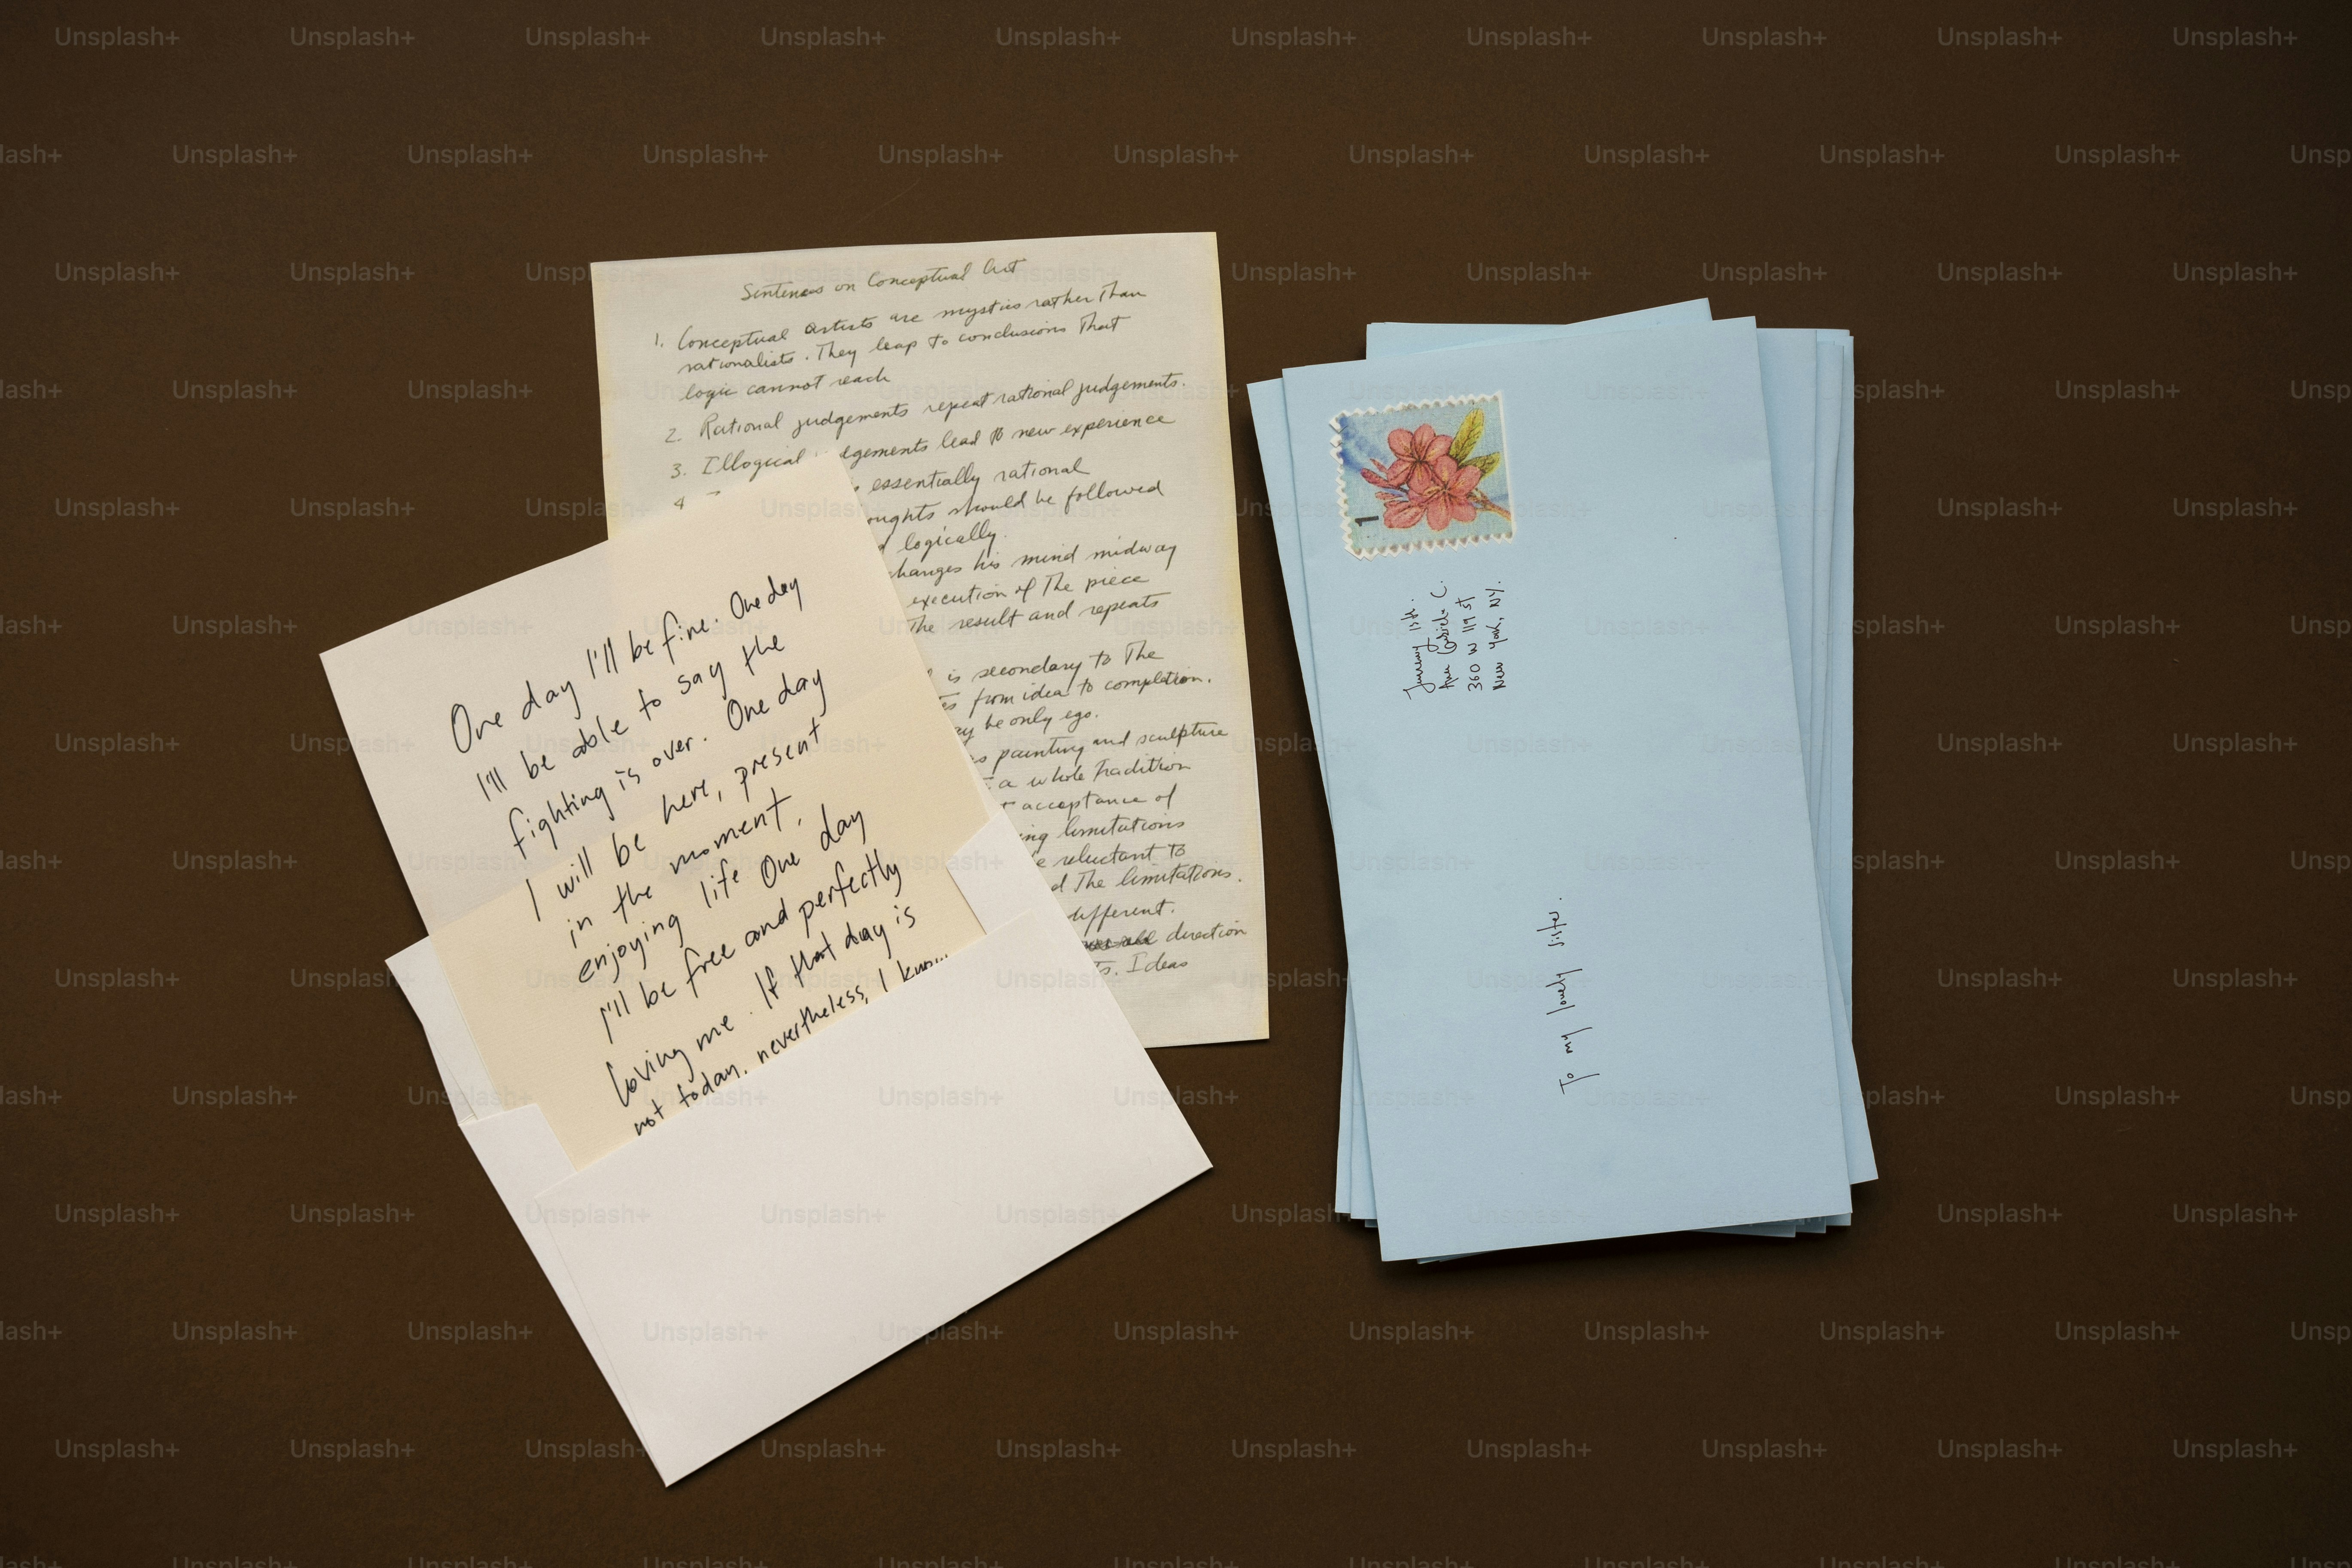 Sentences on Conceptual Art
1. Conceptual Artists are mystics rather than
rationalists. They leap to conclusions that
logic cannot reach
2. Rational judgements repeat rational judgements.
3. Illogical dgements lead to new experience
4
essentially rational
oughts should be followed
logically.
changes his mind midway
execution of The piece
The result and repeats
is secondary to The
from idea to completion.
ay be only ego.
painting and sculpture
a whole Tradition
acceptance of
ing limitations
reluctant to
d The limitations.
different.
direction
Ideas
One day I'll be fine. One day
I'll be able to say the
fighting is over. One day
I will be here, present
in the moment,
enjoying life One day
I'll be free and perfectly
loving me. If that day is
not today, nevertheless, I know
1
January 15th.
Ana Gabriela C.
360 W 119 St
New York, NY.
To my lovely sister.
Unsplash+